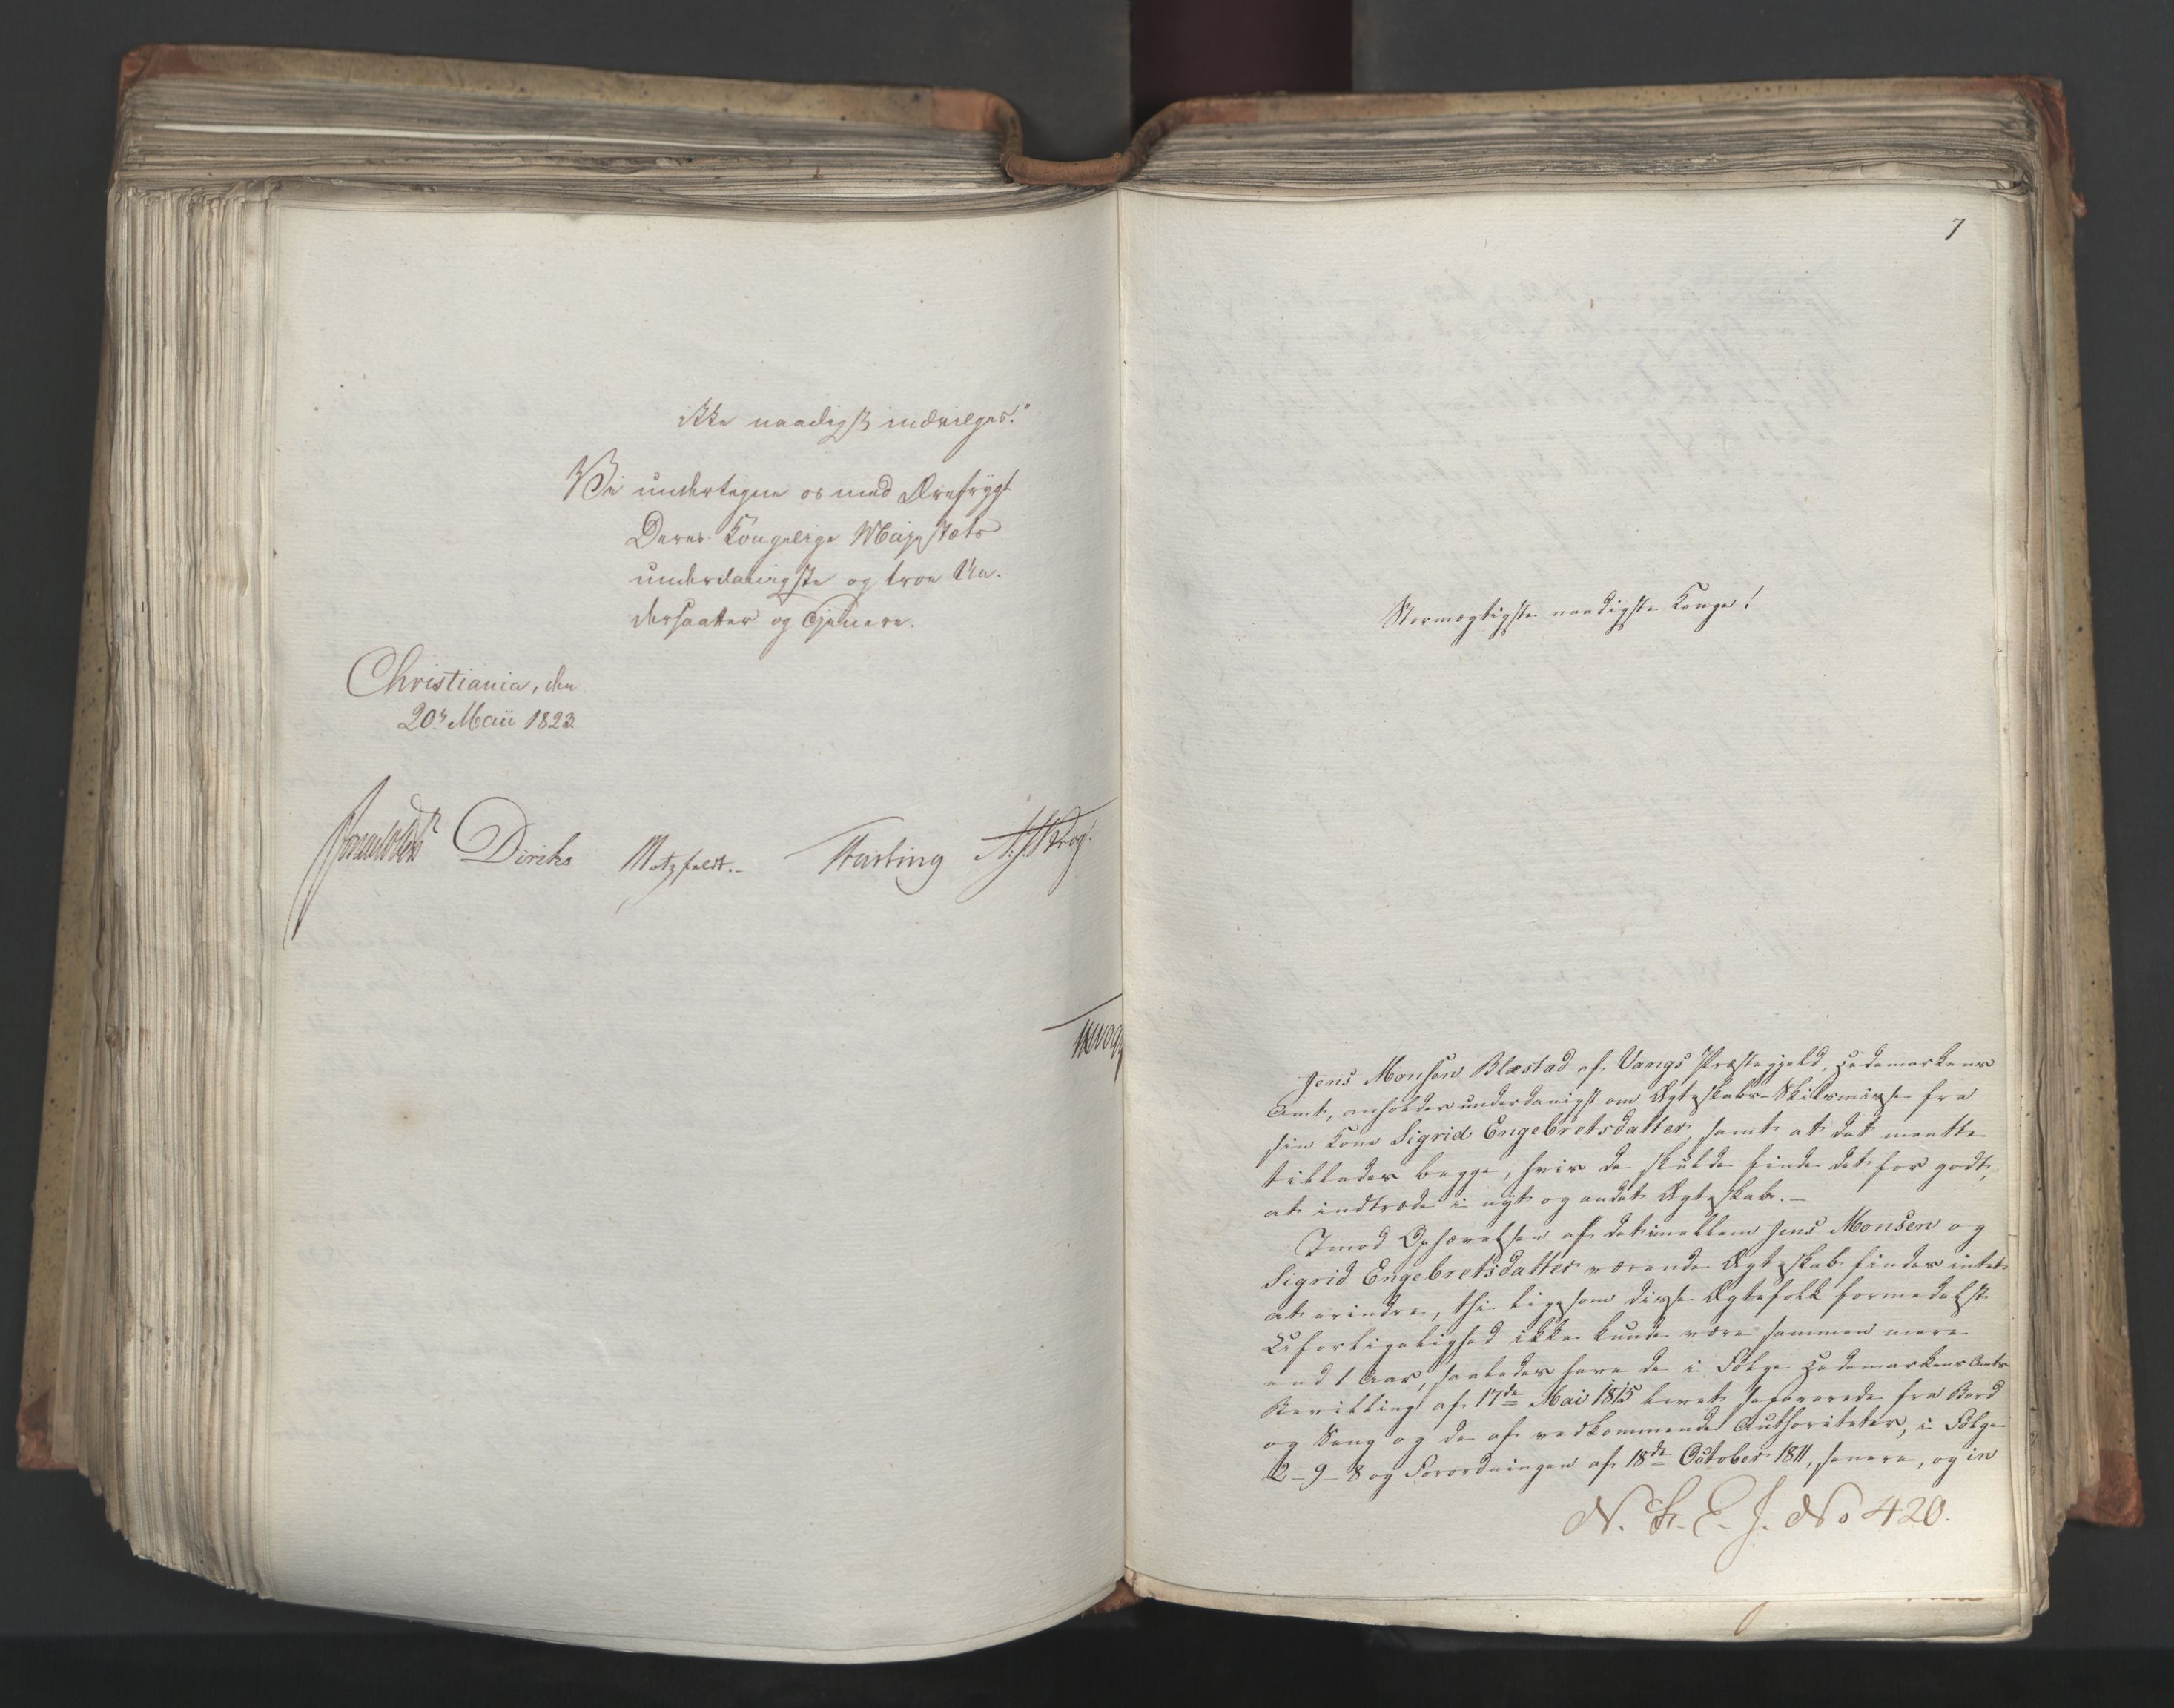 ikke naadigst indvilges."
Vi undertegne os med Ærefrygt
Deres Kongelige Majestæts
underdanigste og troe Un-
dersaatter og Tjenere.
Christiania, den
20de Maii 1823.
Diriks Motzfeldt. Fasting Krog
7
Stormægtigste naadigste Konge!
Jens Monsen Blæstad af Vangs Præstegjeld, Hedemarkens
Amt, anholder underdanigst om Ægteskabs-Skilsmisse fra
sin Kone Sigrid Engebretsdatter, samt at det maatte
tillades begge, hvis de skulde finde det for godt,
at indtræde i nyt og andet Ægteskab.—
Imod Ophævelsen af det imellem Jens Monsen og
Sigrid Engebretsdatter værende Ægteskab findes intet
at erindre, thi ligesom disse Ægtefolk formedelst
Uforligelighed ikke kunde være sammen mere
end 1 Aar, saaledes have de i Følge Hedemarkens Amts
Bevilling af 17de Mai 1815 levet separerede fra Bord
og Seng og de af vedkommende Authoriteter, i Følge
2-9-8 og Forordningen af 18de October 1811, senere, og in
N. S. E. J. No 420.